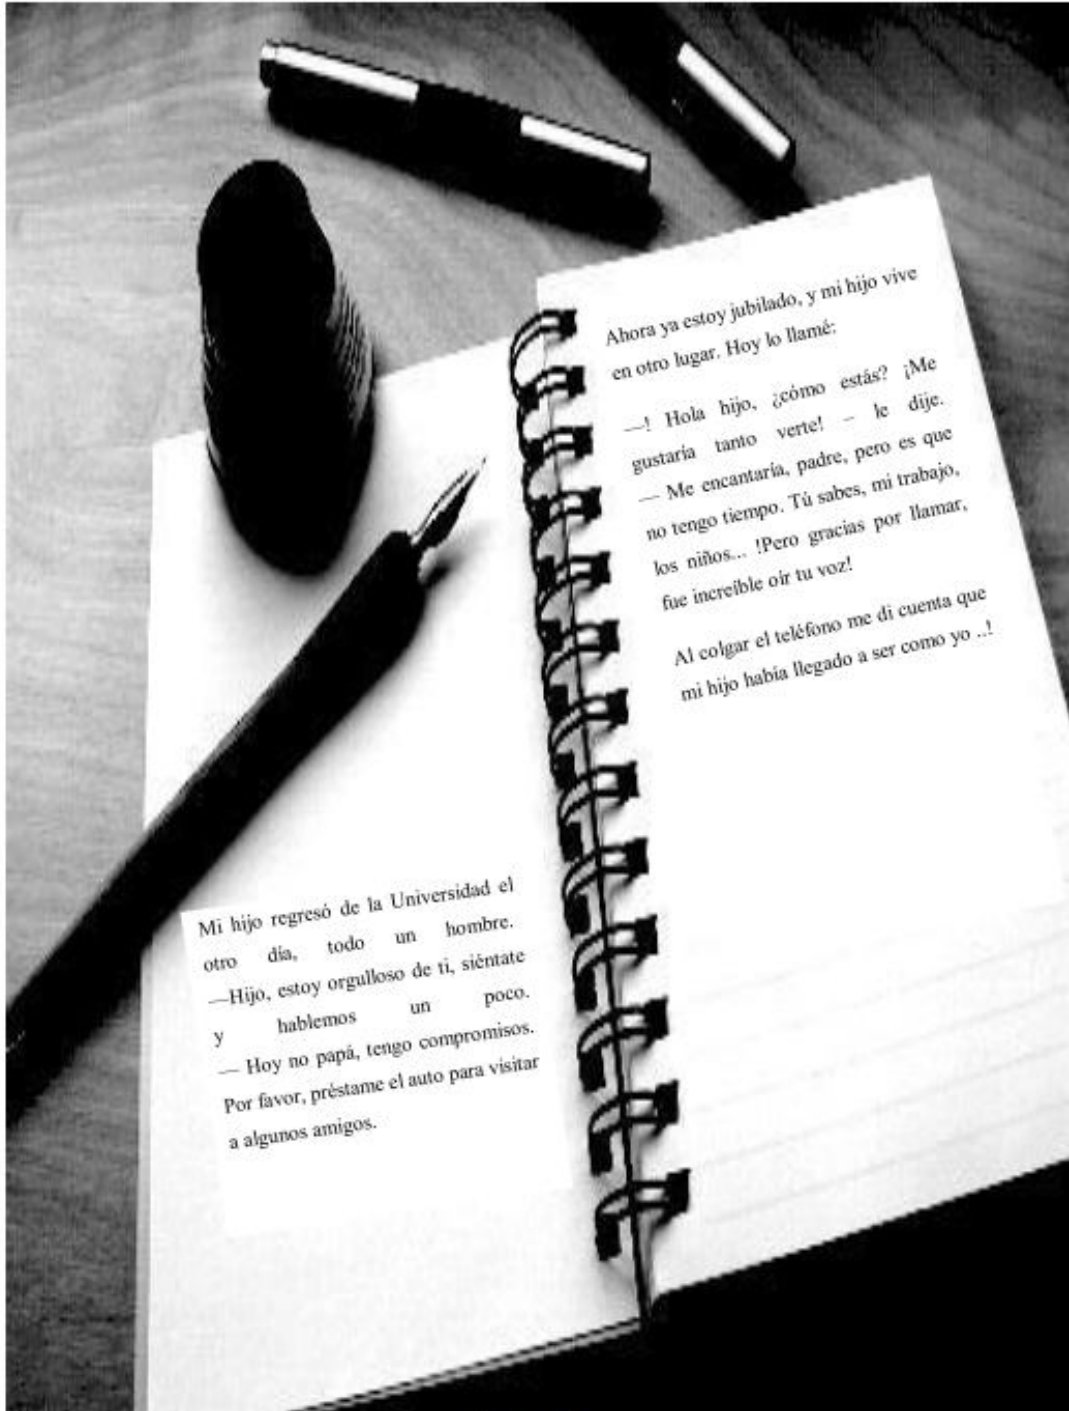 Mi hijo regresó de la Universidad el
otro día, todo un hombre.
—Hijo, estoy orgulloso de ti, siéntate
y hablemos un poco.
— Hoy no papá, tengo compromisos.
Por favor, préstame el auto para visitar
a algunos amigos.
Ahora ya estoy jubilado, y mi hijo vive
en otro lugar. Hoy lo llamé:
—! Hola hijo, ¿cómo estás? ¡Me
gustaría tanto verte! – le dije.
— Me encantaría, padre, pero es que
no tengo tiempo. Tú sabes, mi trabajo,
los niños... !Pero gracias por llamar,
fue increíble oír tu voz!
Al colgar el teléfono me di cuenta que
mi hijo había llegado a ser como yo ..!